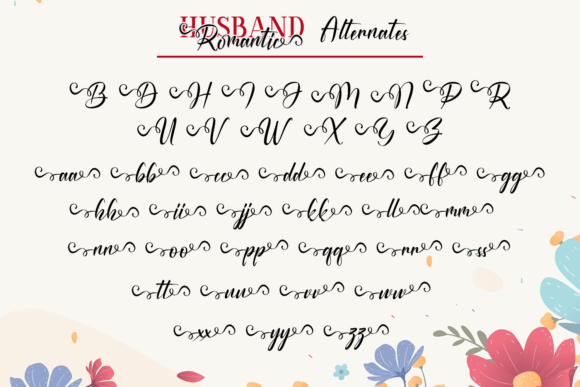 HUSBAND
Romantic Alternates
B D H I J M N P R
U V W X Y Z
aa bb cc dd ee ff gg
hh ii jj kk ll mm
nn oo pp qq rr ss
tt uu vv ww
xx yy zz